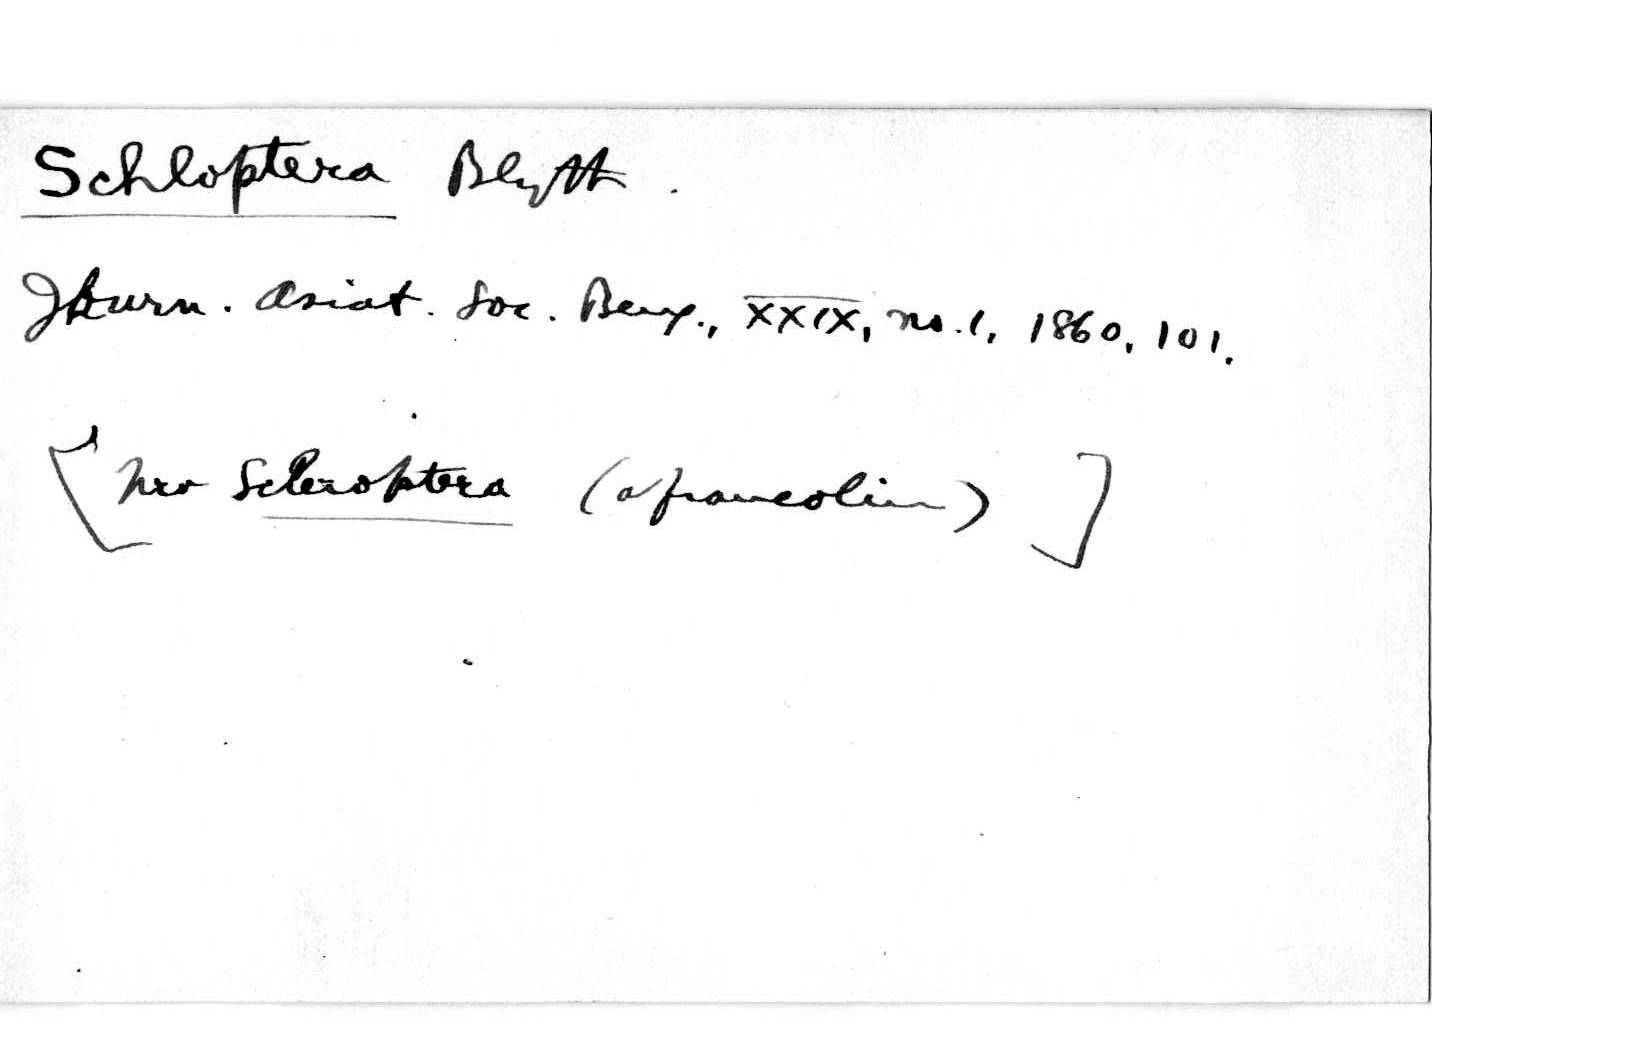 Schloptera Blyth.
Journ. Asiat. Soc. Beng., XXIX, no. 1, 1860, 101.
[pro Scleroptera (a francolin)]